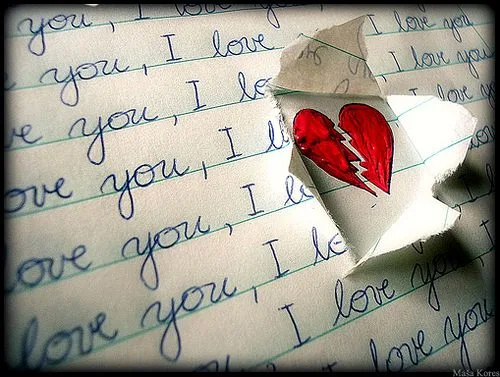 you, I love you
you, I love you, I love you
ve you, I lo you, I love you
ove you, I l love y
ove you, I lo
ove you, I lo
love you, I love you, I
love you
Maša Kores